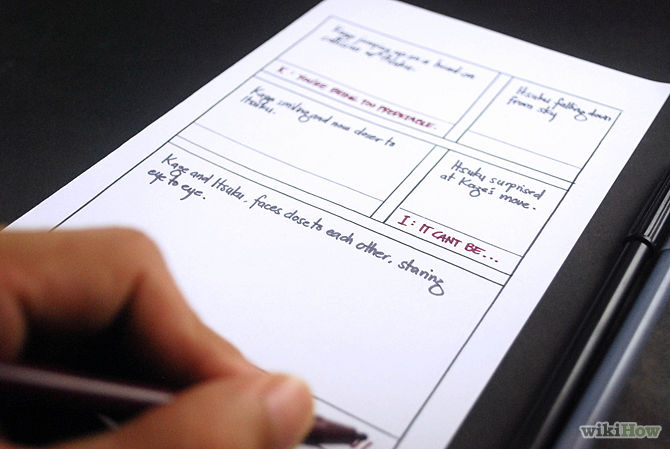 Kage jumping up on a board on
collision w/ Itsuku.
K: YOU'RE BEING TOO PREDICTABLE.
Itsuku falling down
from sky
Kage smiling and now closer to
Itsuku.
Itsuku surprised
at Kage's move.
I: IT CAN'T BE...
Kage and Itsuku, faces close to each other, staring
eye to eye.
wikiHow